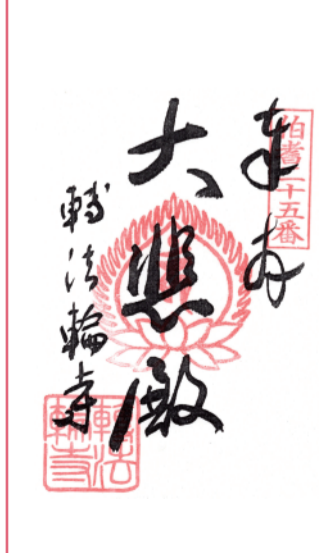 伯耆二十五番
奉拝
大悲殿
轉法輪寺
轉法
輪寺